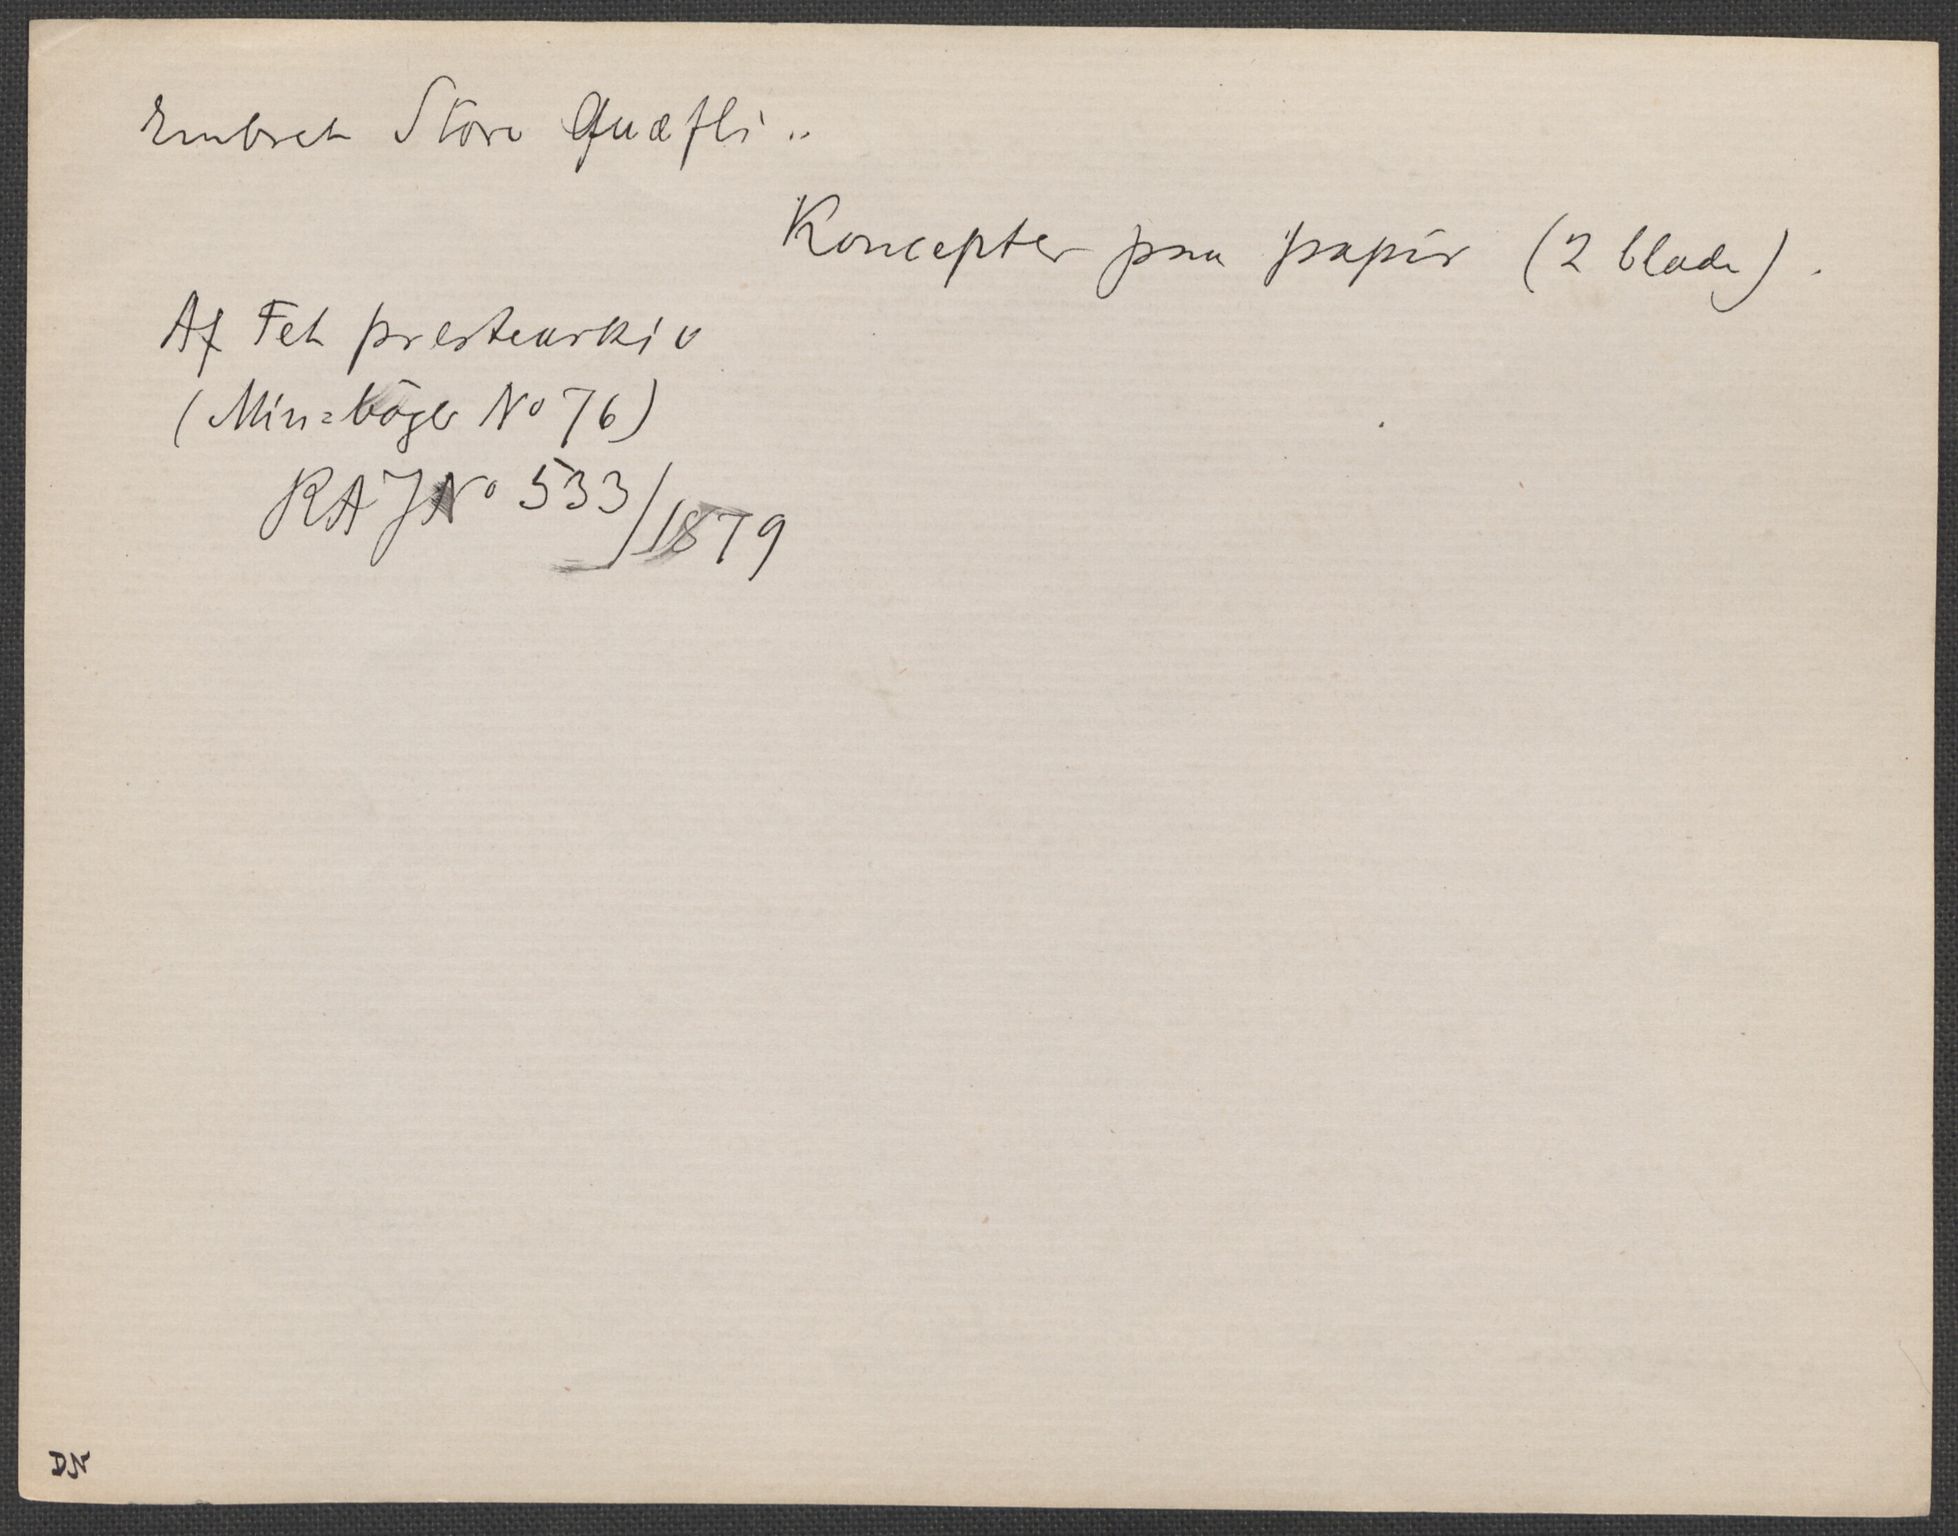 Embret Store Quæfli ..
Koncepter paa papir (2 blade).
Af Fet prestearkiv
(Min=bøger No 76)
RA JNo 533/1879
DN